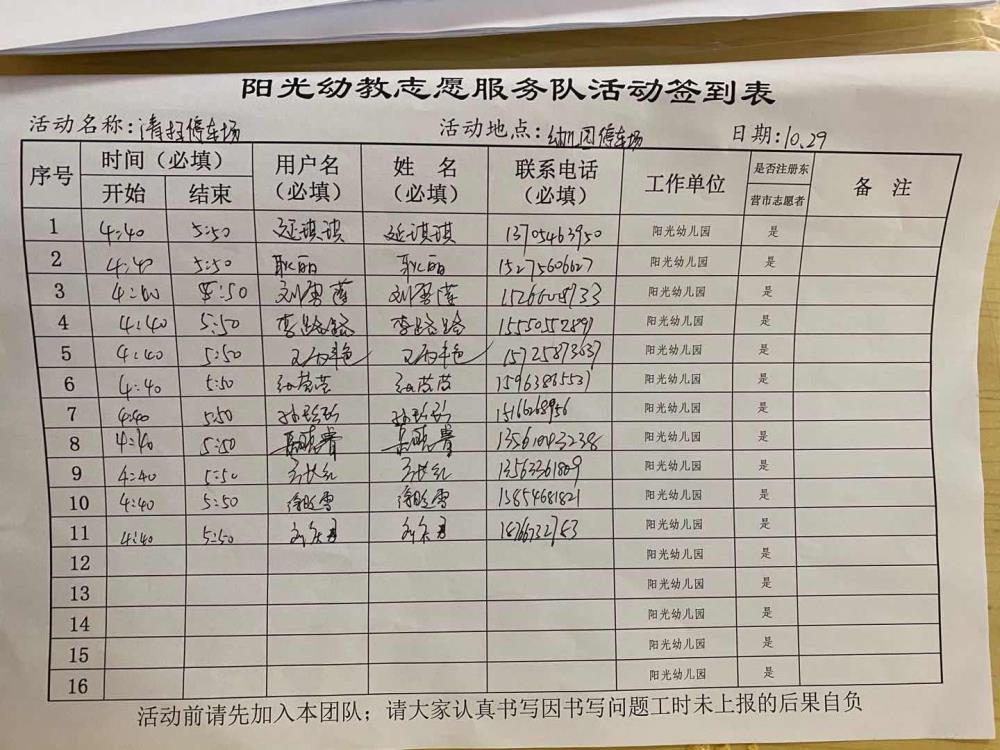 阳光幼教志愿服务队活动签到表
活动名称:清扫停车场 活动地点:幼儿园停车场 日期:10.29
序号 时间（必填） 用户名（必填） 姓 名（必填） 联系电话（必填） 工作单位 是否注册东营市志愿者 备 注
开始 结束
1 4:40 5:50 延琪琪 延琪琪 13705463950 阳光幼儿园 是
2 4:40 5:50 耿丽 耿丽 15275606627 阳光幼儿园 是
3 4:40 5:50 阳光幼儿园 是
4 4:40 5:50 李路路 李路路 15550552891 阳光幼儿园 是
5 4:40 5:50 15725873637 阳光幼儿园 是
6 4:40 5:50 15963865531 阳光幼儿园 是
7 4:40 5:50 孙珍珍 孙珍珍 阳光幼儿园 是
8 4:40 5:50 阳光幼儿园 是
9 4:40 5:50 13563361809 阳光幼儿园 是
10 4:40 5:50 15854681821 阳光幼儿园 是
11 4:40 5:50 阳光幼儿园 是
12 阳光幼儿园 是
13 阳光幼儿园 是
14 阳光幼儿园 是
15 阳光幼儿园 是
16 阳光幼儿园 是
活动前请先加入本团队；请大家认真书写因书写问题工时未上报的后果自负